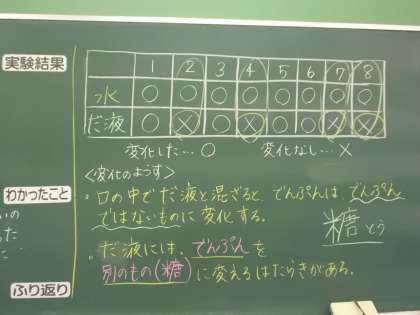 実験結果
1 2 3 4 5 6 7 8
水 ○ ○ ○ ○ ○ ○ ○ ○
だ液 ○ × ○ × ○ ○ × ×
変化した…○ 変化なし…×
<変化のようす>
わかったこと
・口の中でだ液と混ざると、でんぷんは、でんぷん
ではないものに変化する。
糖 とう
・だ液には、でんぷんを
別のもの(糖)に変えるはたらきがある。
ふり返り